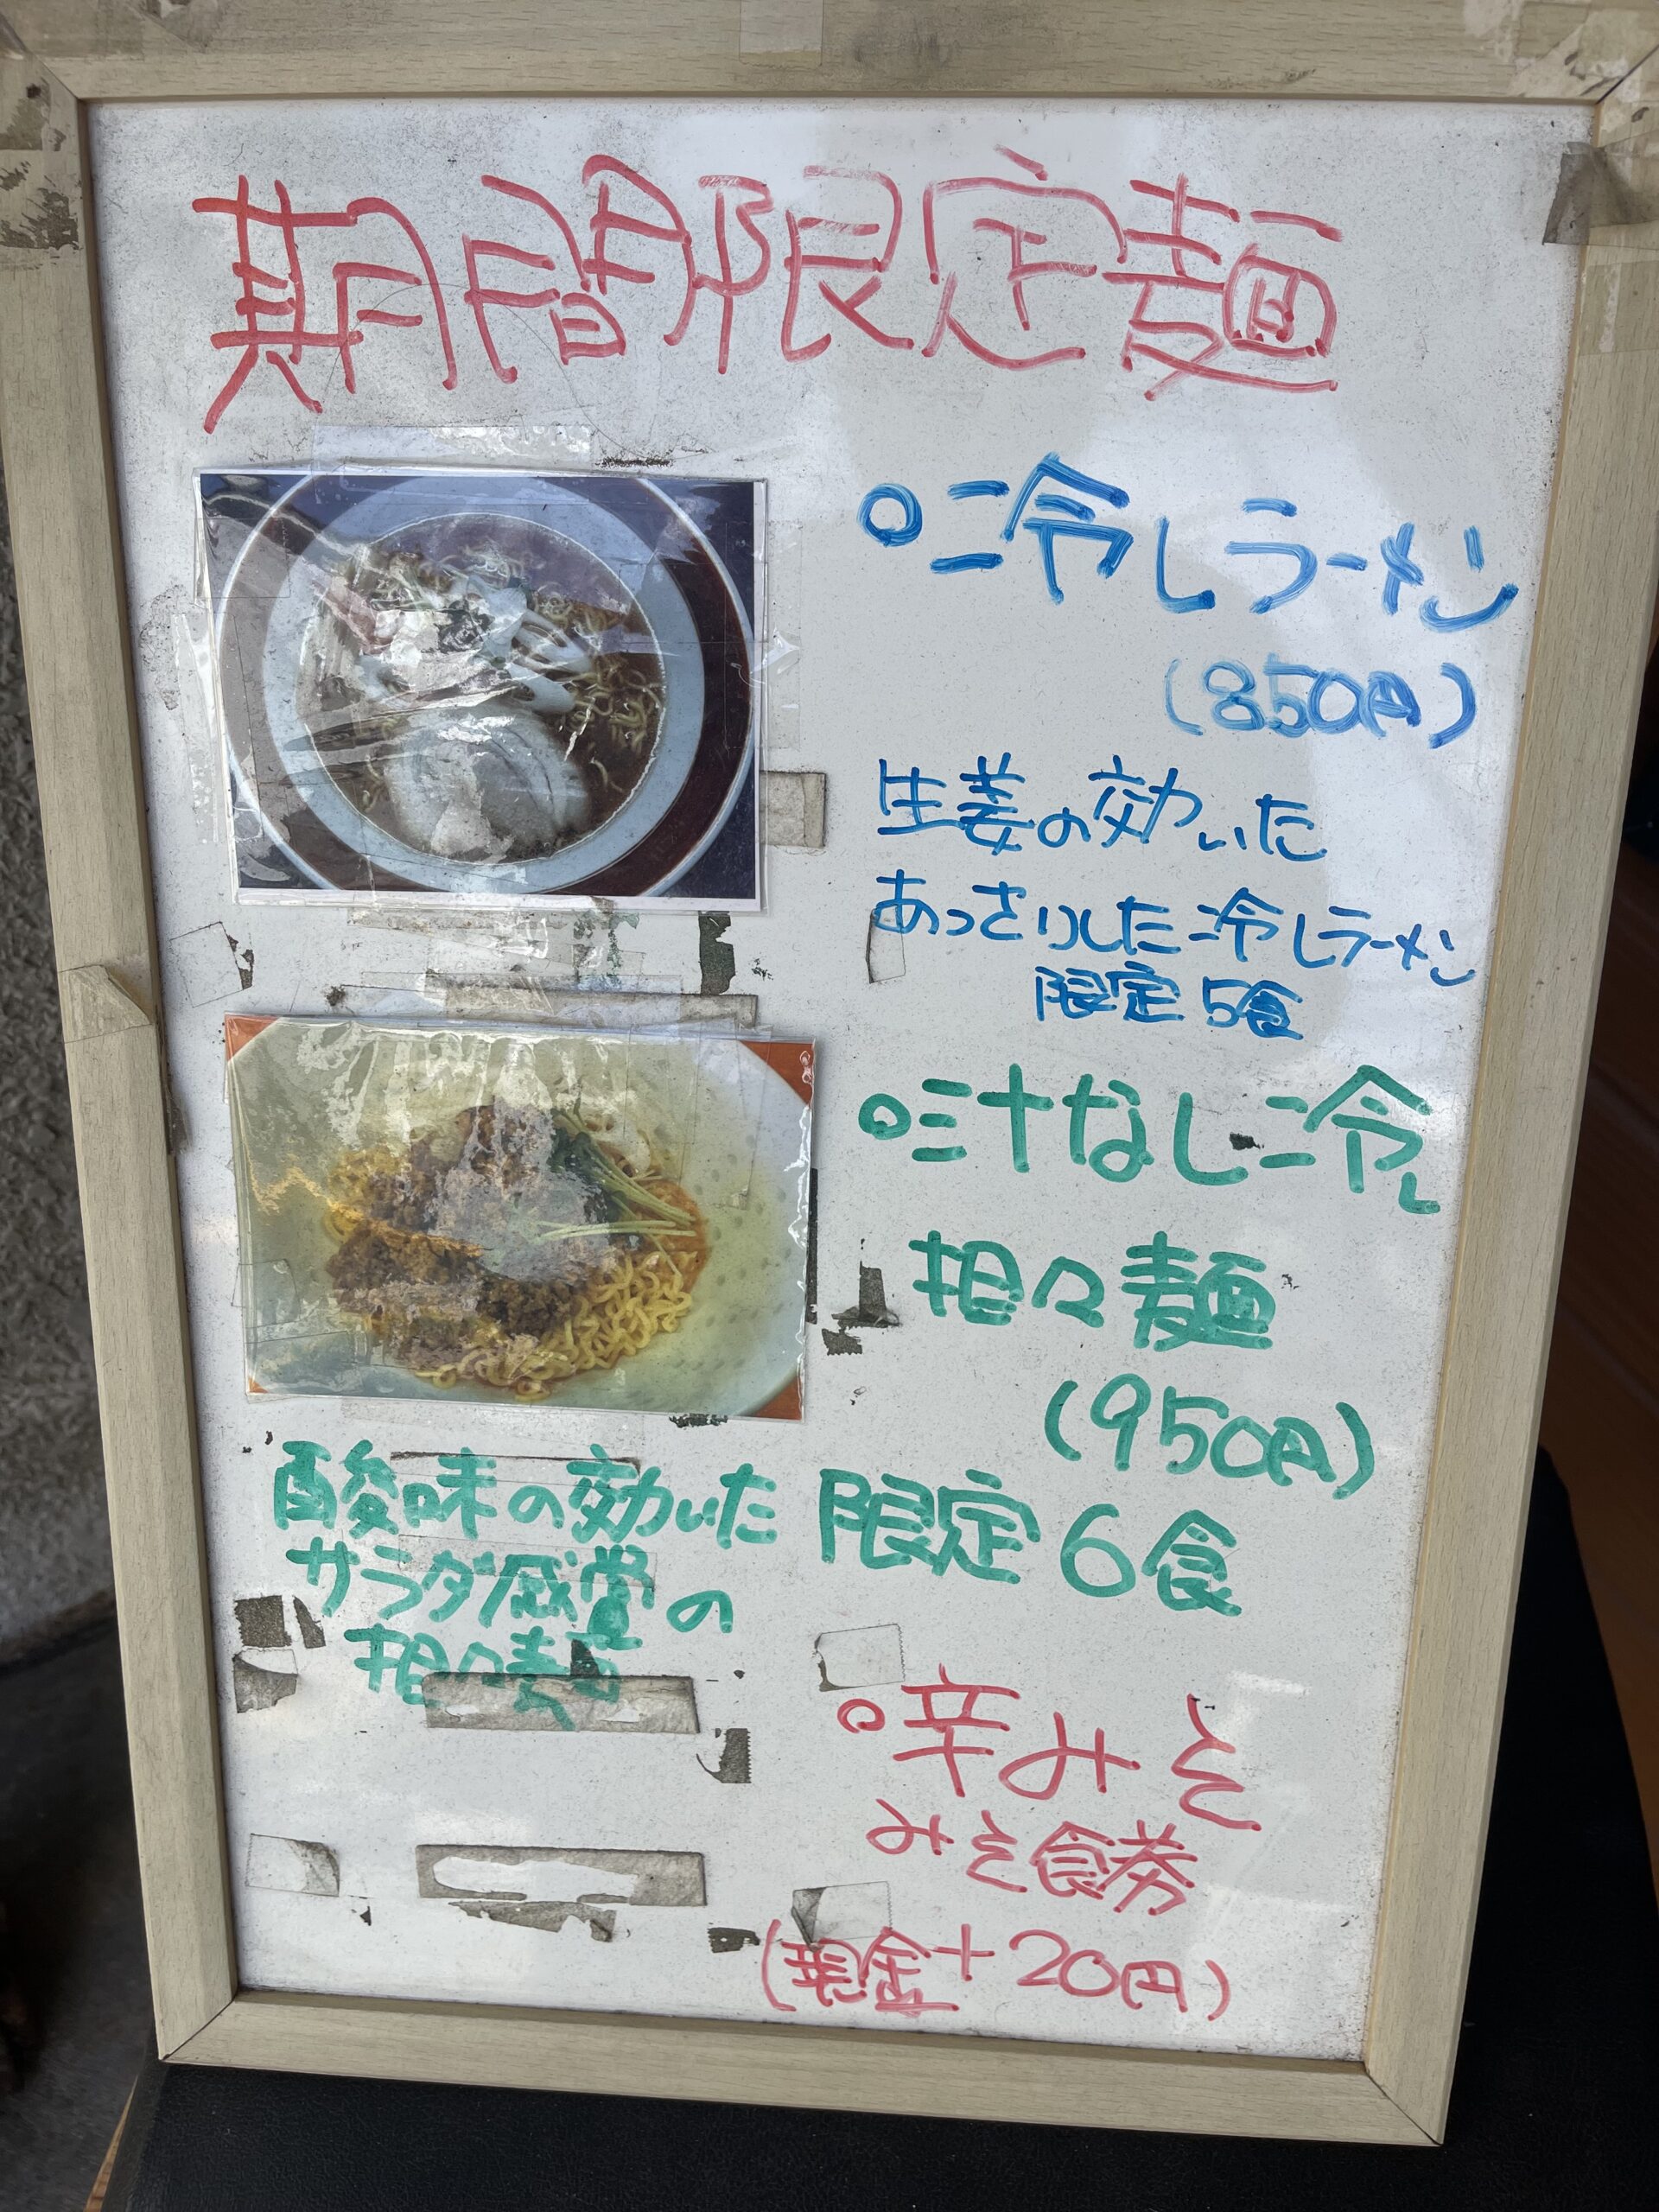 期間限定麺
○冷しラーメン
(850円)
生姜の効いた
あっさりした冷しラーメン
限定5食
○汁なし冷し
担々麺
(950円)
限定6食
酸味の効いた
サラダ感覚の
担々麺
○辛みそ
みそ食券
(現金+20円)